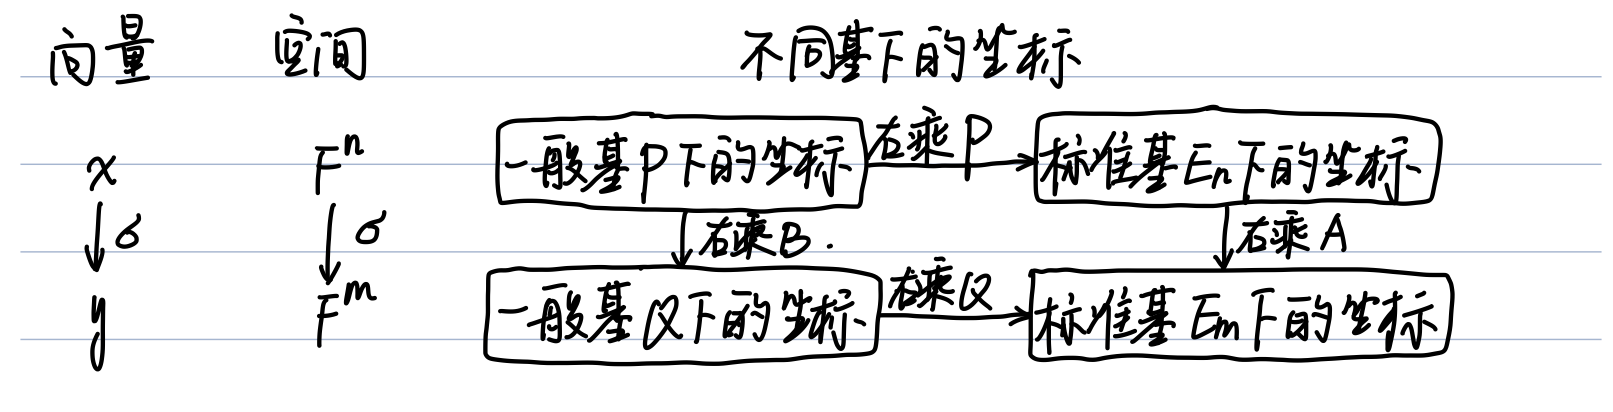 向量 空间 不同基下的坐标
x F^n 一般基P下的坐标 右乘P 标准基E_n下的坐标
σ σ 右乘B. 右乘A
y F^m 一般基Q下的坐标 右乘Q 标准基E_m下的坐标